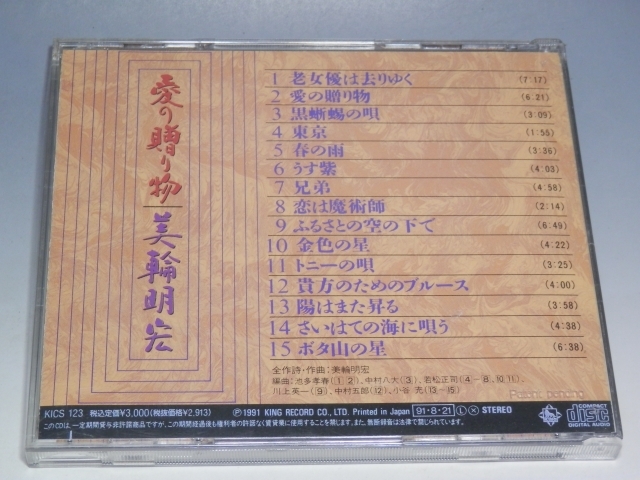 愛の贈り物
美輪明宏
1 老女優は去りゆく (7:17)
2 愛の贈り物 (6:21)
3 黒蜥蜴の唄 (3:09)
4 東京 (1:55)
5 春の雨 (3:36)
6 うす紫 (4:03)
7 兄弟 (4:58)
8 恋は魔術師 (2:14)
9 ふるさとの空の下で (6:49)
10 金色の星 (4:22)
11 トニーの唄 (3:25)
12 貴方のためのブルース (4:00)
13 陽はまた昇る (3:58)
14 さいはての海に唄う (4:38)
15 ボタ山の星 (6:38)
全作詩・作曲:美輪明宏
編曲:池多孝春(1、2)、中村八大(3)、若松正司(4–8、10、11)、
川上英一(9)、中村五郎(12)、小谷 充(13–15)
KICS 123 税込定価¥3,000(税抜価格¥2,913) Ⓟ1991 KING RECORD CO., LTD. Printed in Japan 91・8・21 Ⓛ Ⓧ STEREO
COMPACT disc DIGITAL AUDIO
このCDは、一定期間貸与非許諾商品ですが、この期間経過後も権利者の許諾なく賃貸業に使用することを禁じます。また、無断録音は法律で禁じられています。